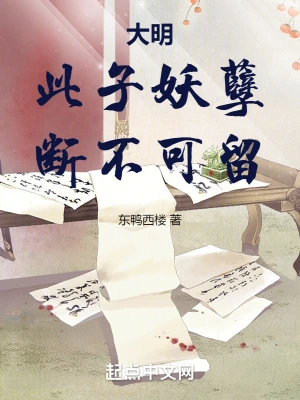 大明
此子妖孽
断不可留
东鸭西楼 著
起点中文网